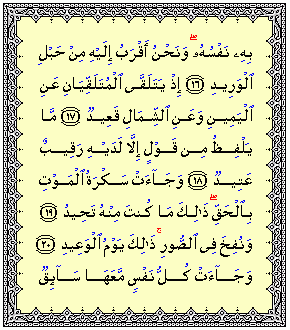 بِهِۦ نَفْسُهُۥۖ وَنَحْنُ أَقْرَبُ إِلَيْهِ مِنْ حَبْلِ
ٱلْوَرِيدِ ١٦ إِذْ يَتَلَقَّى ٱلْمُتَلَقِّيَانِ عَنِ
ٱلْيَمِينِ وَعَنِ ٱلشِّمَالِ قَعِيدٌ ١٧ مَّا
يَلْفِظُ مِن قَوْلٍ إِلَّا لَدَيْهِ رَقِيبٌ
عَتِيدٌ ١٨ وَجَآءَتْ سَكْرَةُ ٱلْمَوْتِ
بِٱلْحَقِّۖ ذَٰلِكَ مَا كُنتَ مِنْهُ تَحِيدُ ١٩
وَنُفِخَ فِى ٱلصُّورِۚ ذَٰلِكَ يَوْمُ ٱلْوَعِيدِ ٢٠
وَجَآءَتْ كُلُّ نَفْسٍ مَّعَهَا سَآئِقٌ